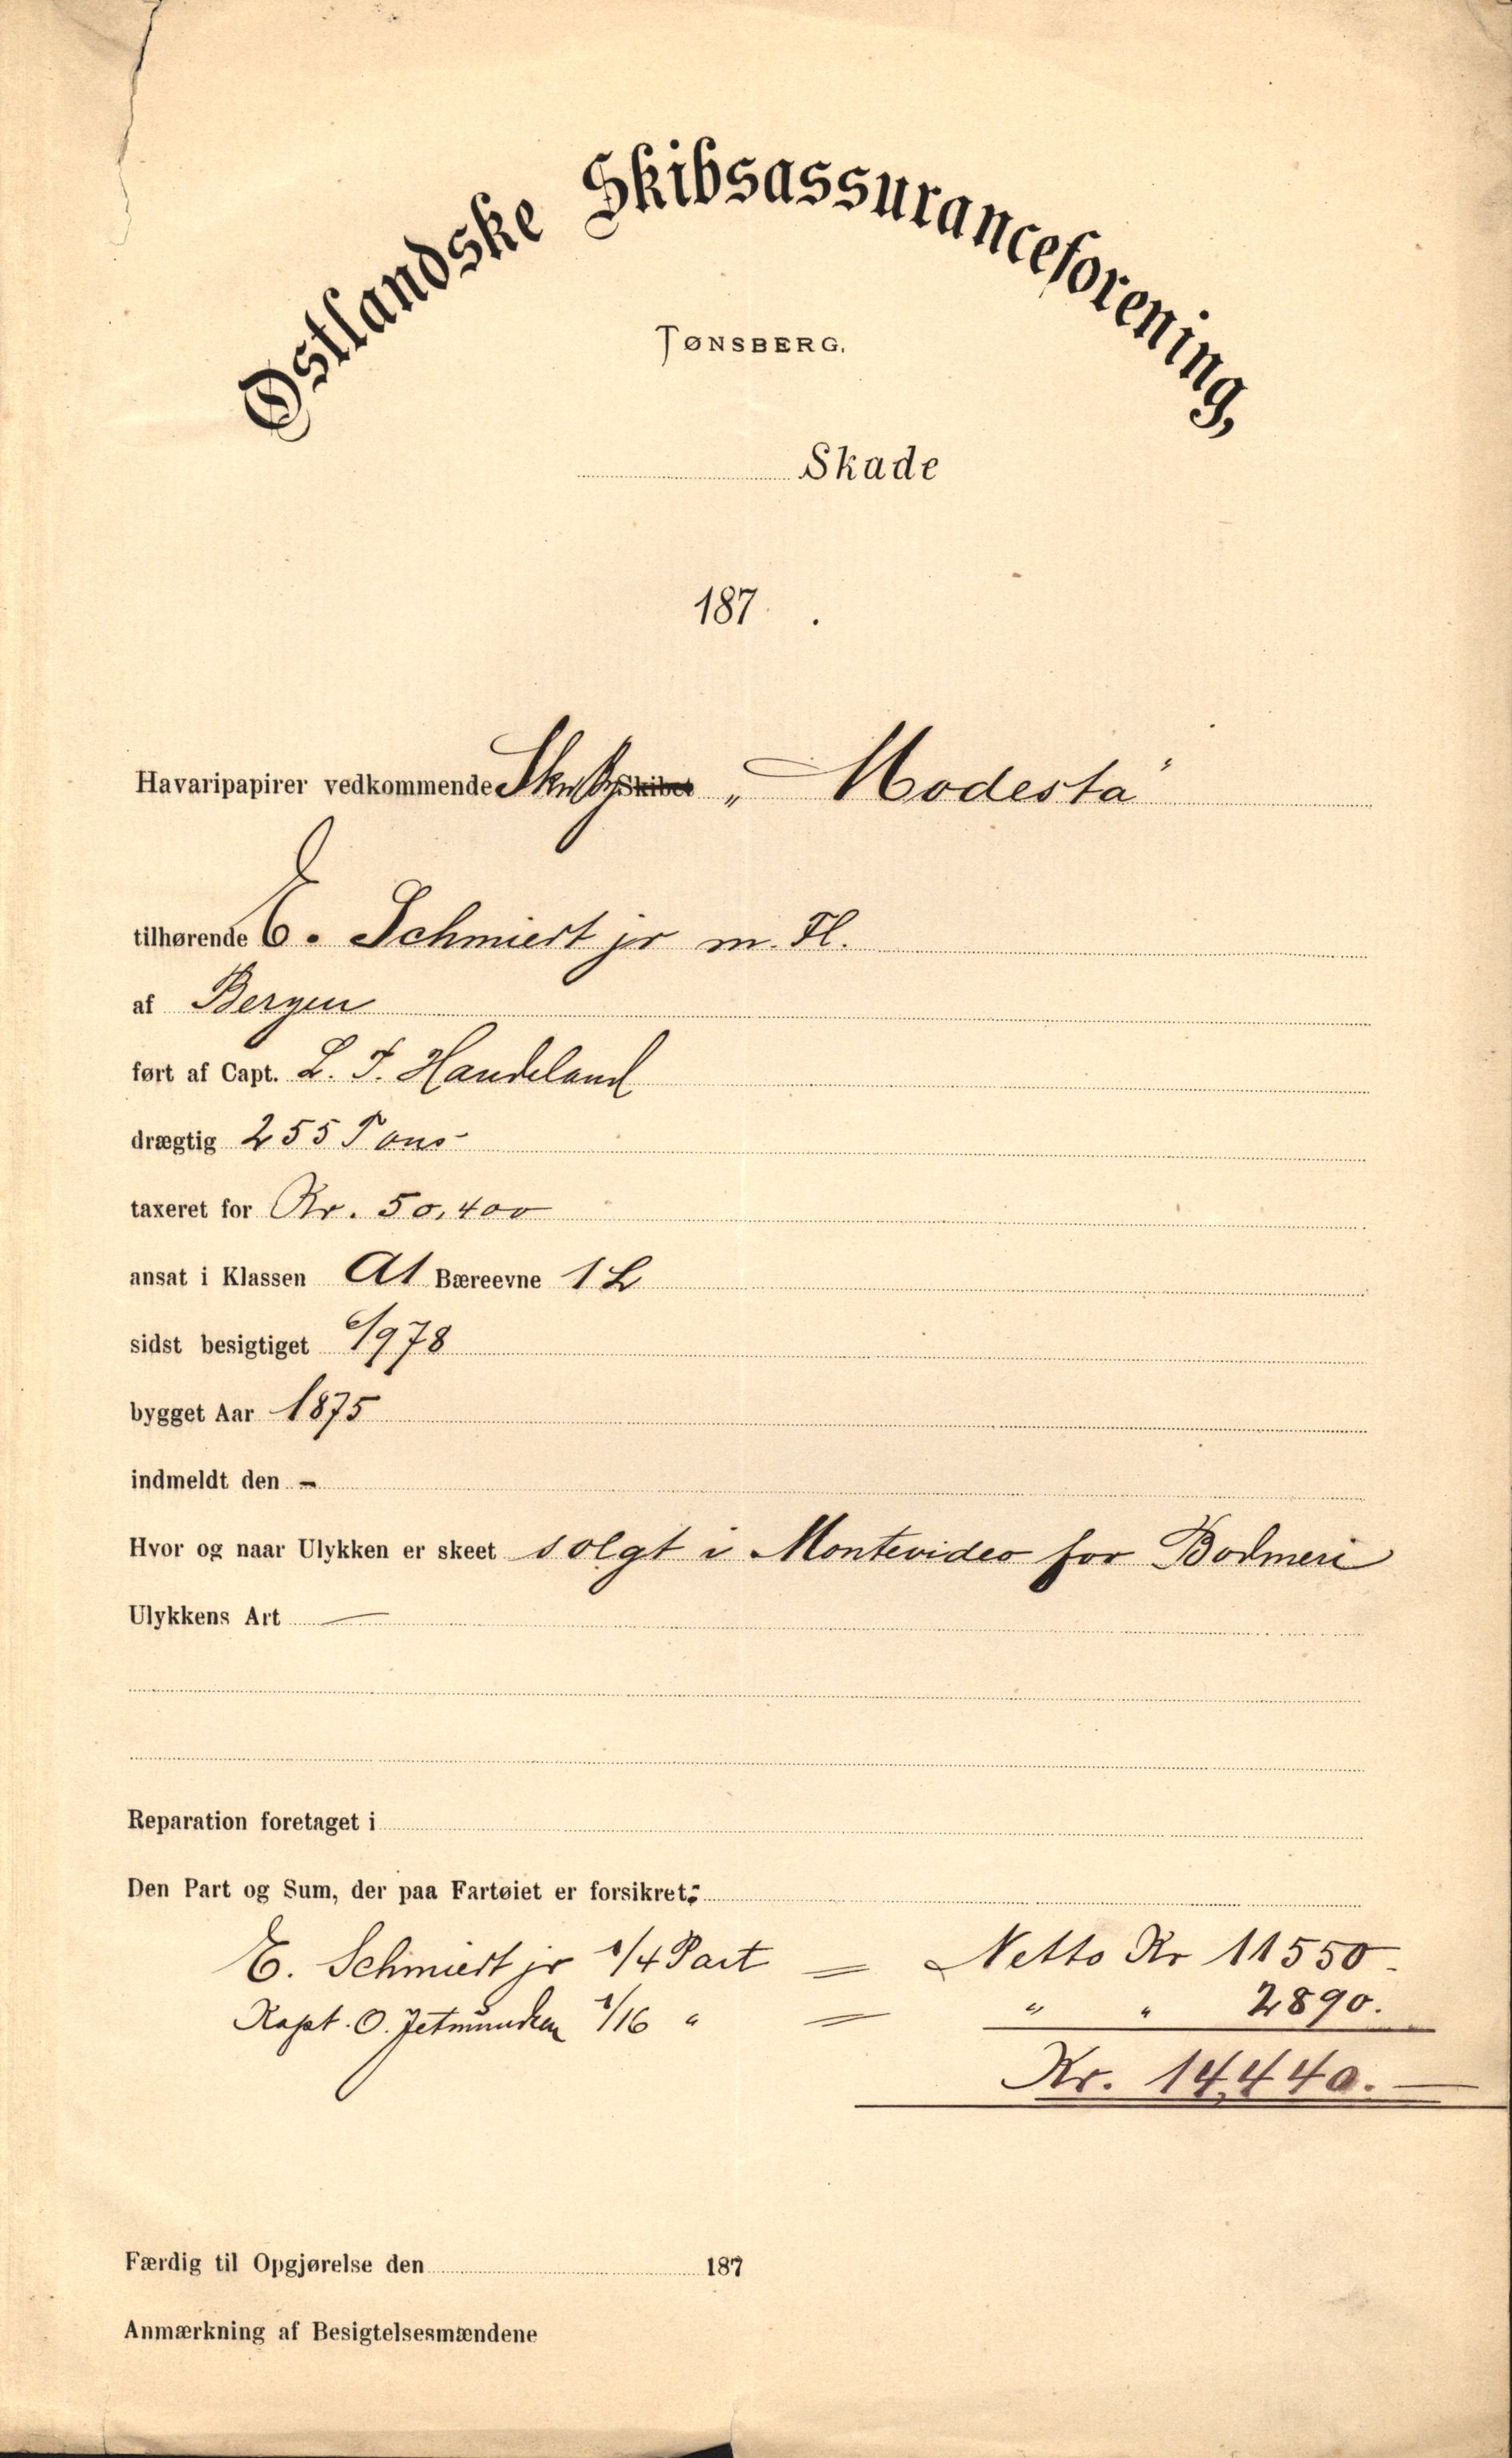 Østlandske Skibsassuranceforening,
TØNSBERG.
Skade
187 .
Havaripapirer vedkommende Skbr Skibet „Modesta"
tilhørende E. Schmidt jr m. Fl.
af Bergen
ført af Capt. L. T. Handeland
drægtig 255 Tons
taxeret for Kr. 50,400
ansat i Klassen A1 Bæreevne 1 L
sidst besigtiget 6/9 78
bygget Aar 1875
indmeldt den –
Hvor og naar Ulykken er skeet solgt i Montevideo for Bodmeri
Ulykkens Art —
Reparation foretaget i
Den Part og Sum, der paa Fartøiet er forsikret:
E. Schmidt jr 1/4 Part = Netto Kr 11550-
Kapt. O. 1/16 " = " " 2890.
Kr. 14,440.—
Færdig til Opgjørelse den 187
Anmærkning af Besigtelsesmændene